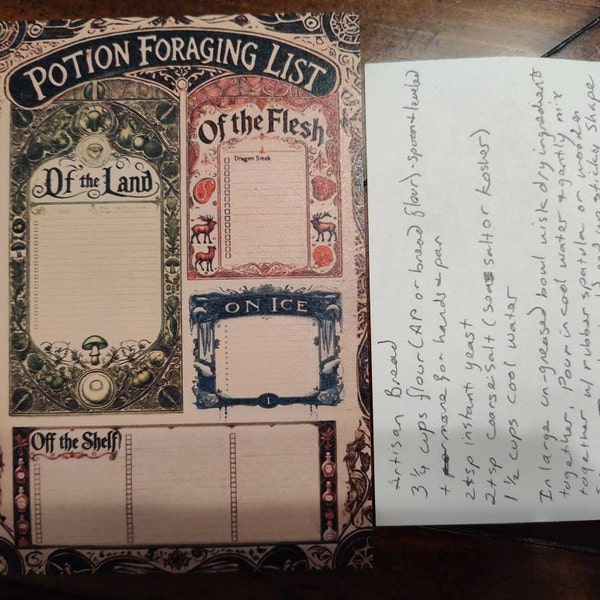 POTION FORAGING LIST
Of the Land
Of the Flesh
Dragon Steak
ON ICE
1
Off the Shelf
Artisan Bread
3 1/4 cups flour (AP or bread flour) · spoon + leveled
+ more for hands + pan
2 tsp instant yeast
2 tsp coarse salt (sea salt or kosher)
1 1/2 cups cool water
In large un-greased bowl wisk dry ingredients
together, pour in cool water + gently mix
together w/ rubber spatula or wooden
sticky shape